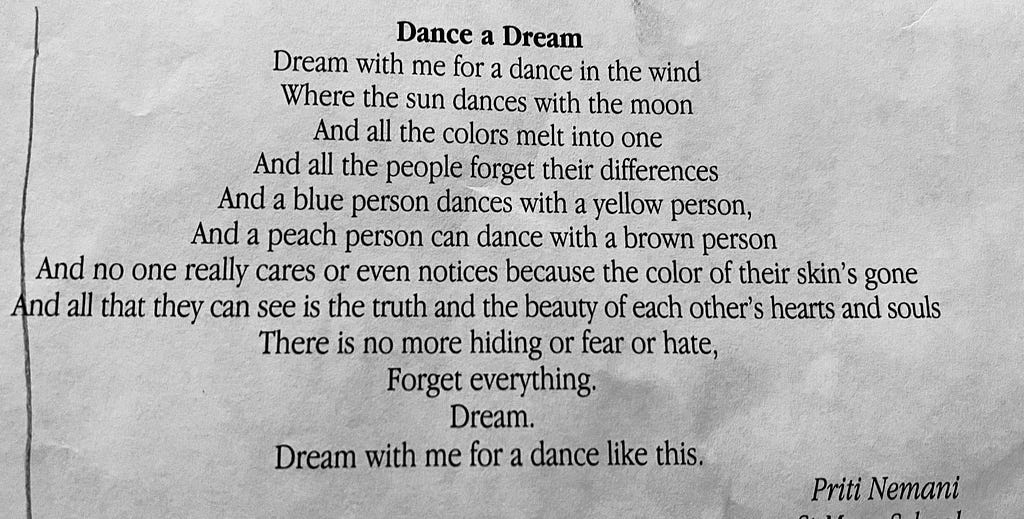 Dance a Dream
Dream with me for a dance in the wind
Where the sun dances with the moon
And all the colors melt into one
And all the people forget their differences
And a blue person dances with a yellow person,
And a peach person can dance with a brown person
And no one really cares or even notices because the color of their skin's gone
And all that they can see is the truth and the beauty of each other's hearts and souls
There is no more hiding or fear or hate,
Forget everything.
Dream.
Dream with me for a dance like this.
Priti Nemani